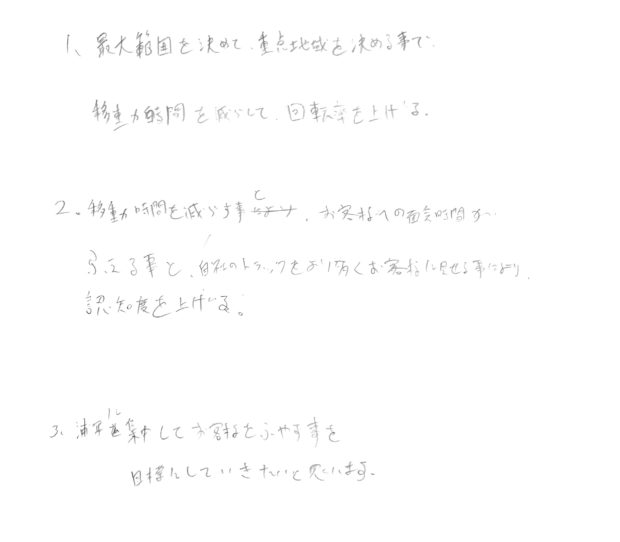 1、最大範囲を決めて、重点地域を決める事で、
移動時間を減らして、回転率を上げる。
2。移動時間を減らす事と、お客様への面会時間が
ふえる事と、自社のトラックをより多くお客様に見せる事により、
認知度を上げる。
3、浦安に集中してお客様をふやす事を
目標にしていきたいと思います。